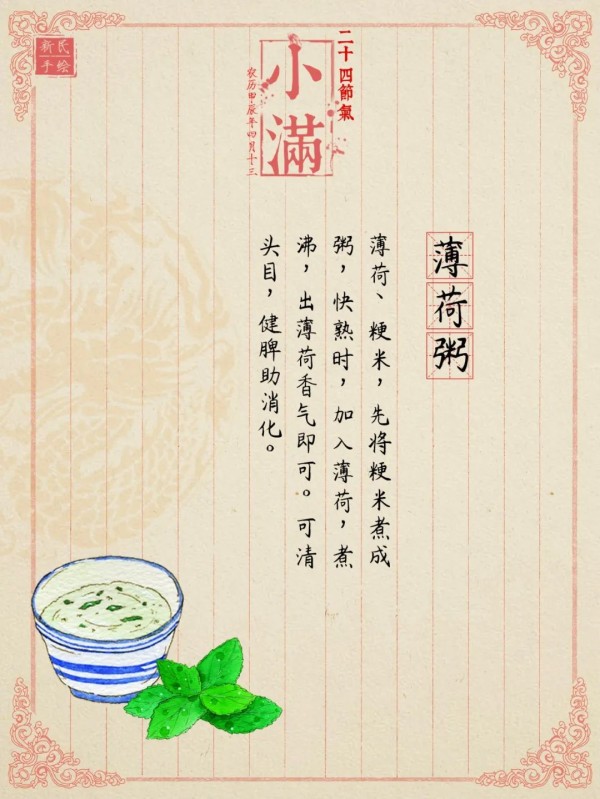 新民
手绘
二十四節氣
小滿
农历甲辰年四月十三
薄荷粥
薄荷、粳米，先将粳米煮成
粥，快熟时，加入薄荷，煮
沸，出薄荷香气即可。可清
头目，健脾助消化。